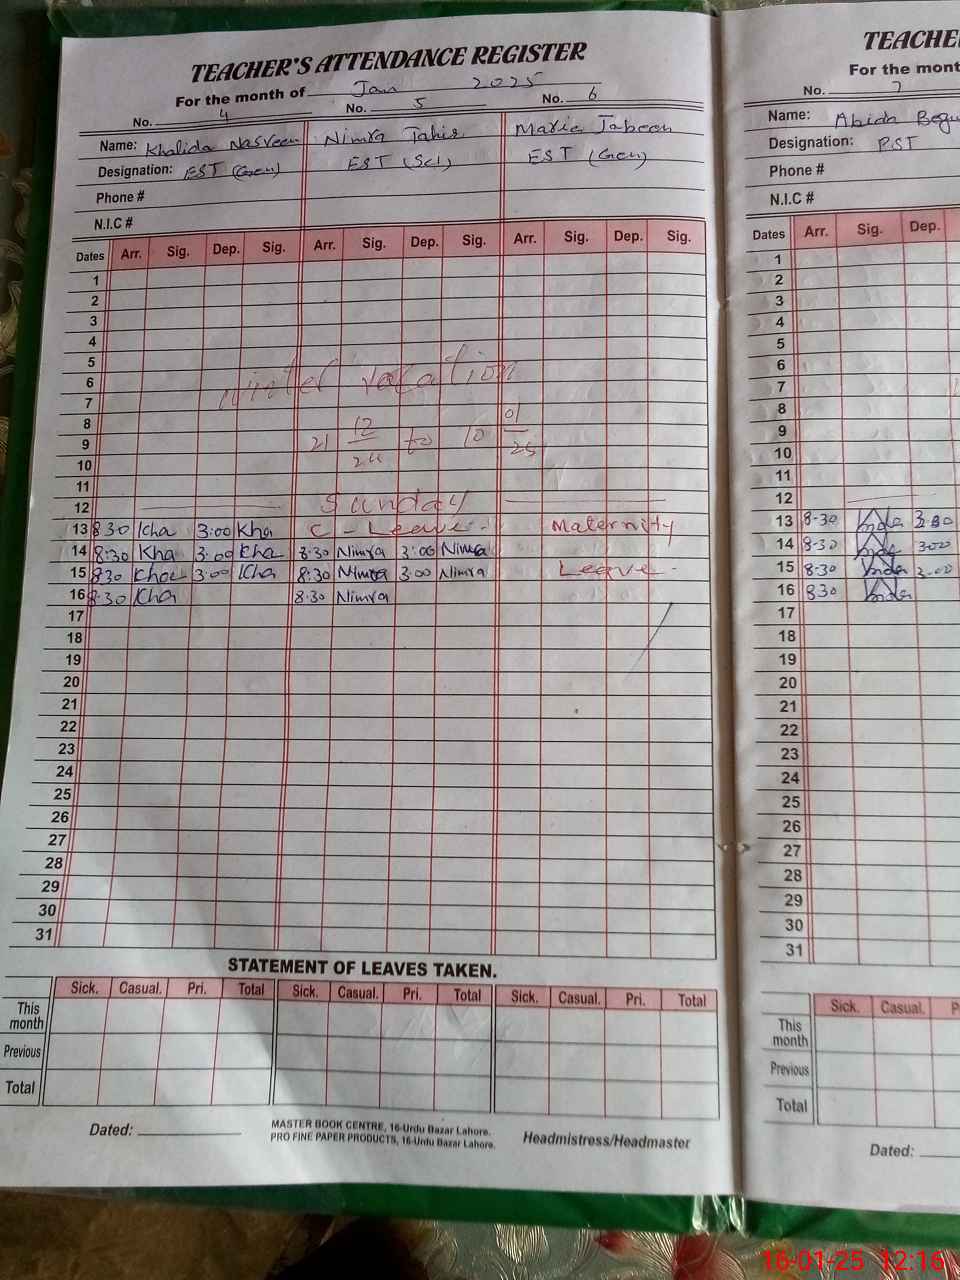 TEACHER'S ATTENDANCE REGISTER
For the month of Jan 2025
No. 4 No. 5 No. 6
Name: Khalida Nasreen Nimra Tahir Maria Jabeen
Designation: EST (Gen) EST (Sci) EST (Gen)
Phone #
N.I.C #
Dates Arr. Sig. Dep. Sig. Arr. Sig. Dep. Sig. Arr. Sig. Dep. Sig.
1
2
3
4
5
6 Winter Vacation
7
8
9 21 12/24 to 10 01/25
10
11
12 Sunday
13 8 30 Kha 3:00 Kha C - Leave - Maternity
14 8:30 Kha 3:00 Kha 8:30 Nimra 3:00 Nimra
15 8 30 Kha 3:00 Kha 8:30 Nimra 3:00 Nimra Leave -
16 8.30 Kha 8.30 Nimra
17
18
19
20
21
22
23
24
25
26
27
28
29
30
31
STATEMENT OF LEAVES TAKEN.
Sick. Casual. Pri. Total Sick. Casual. Pri. Total Sick. Casual. Pri. Total
This month
Previous
Total
Dated:
MASTER BOOK CENTRE, 16-Urdu Bazar Lahore.
PRO FINE PAPER PRODUCTS, 16-Urdu Bazar Lahore.
Headmistress/Headmaster
TEACHE
For the mont
No. 7
Name: Abida Begu
Designation: PST
Phone #
N.I.C #
Dates Arr. Sig. Dep.
1
2
3
4
5
6
7
8
9
10
11
12
13 8-30
14 8-30 3:00
15 8-30 3-00
16 830
17
18
19
20
21
22
23
24
25
26
27
28
29
30
31
Sick. Casual. P
This month
Previous
Total
Dated:
16-01-25 12:16